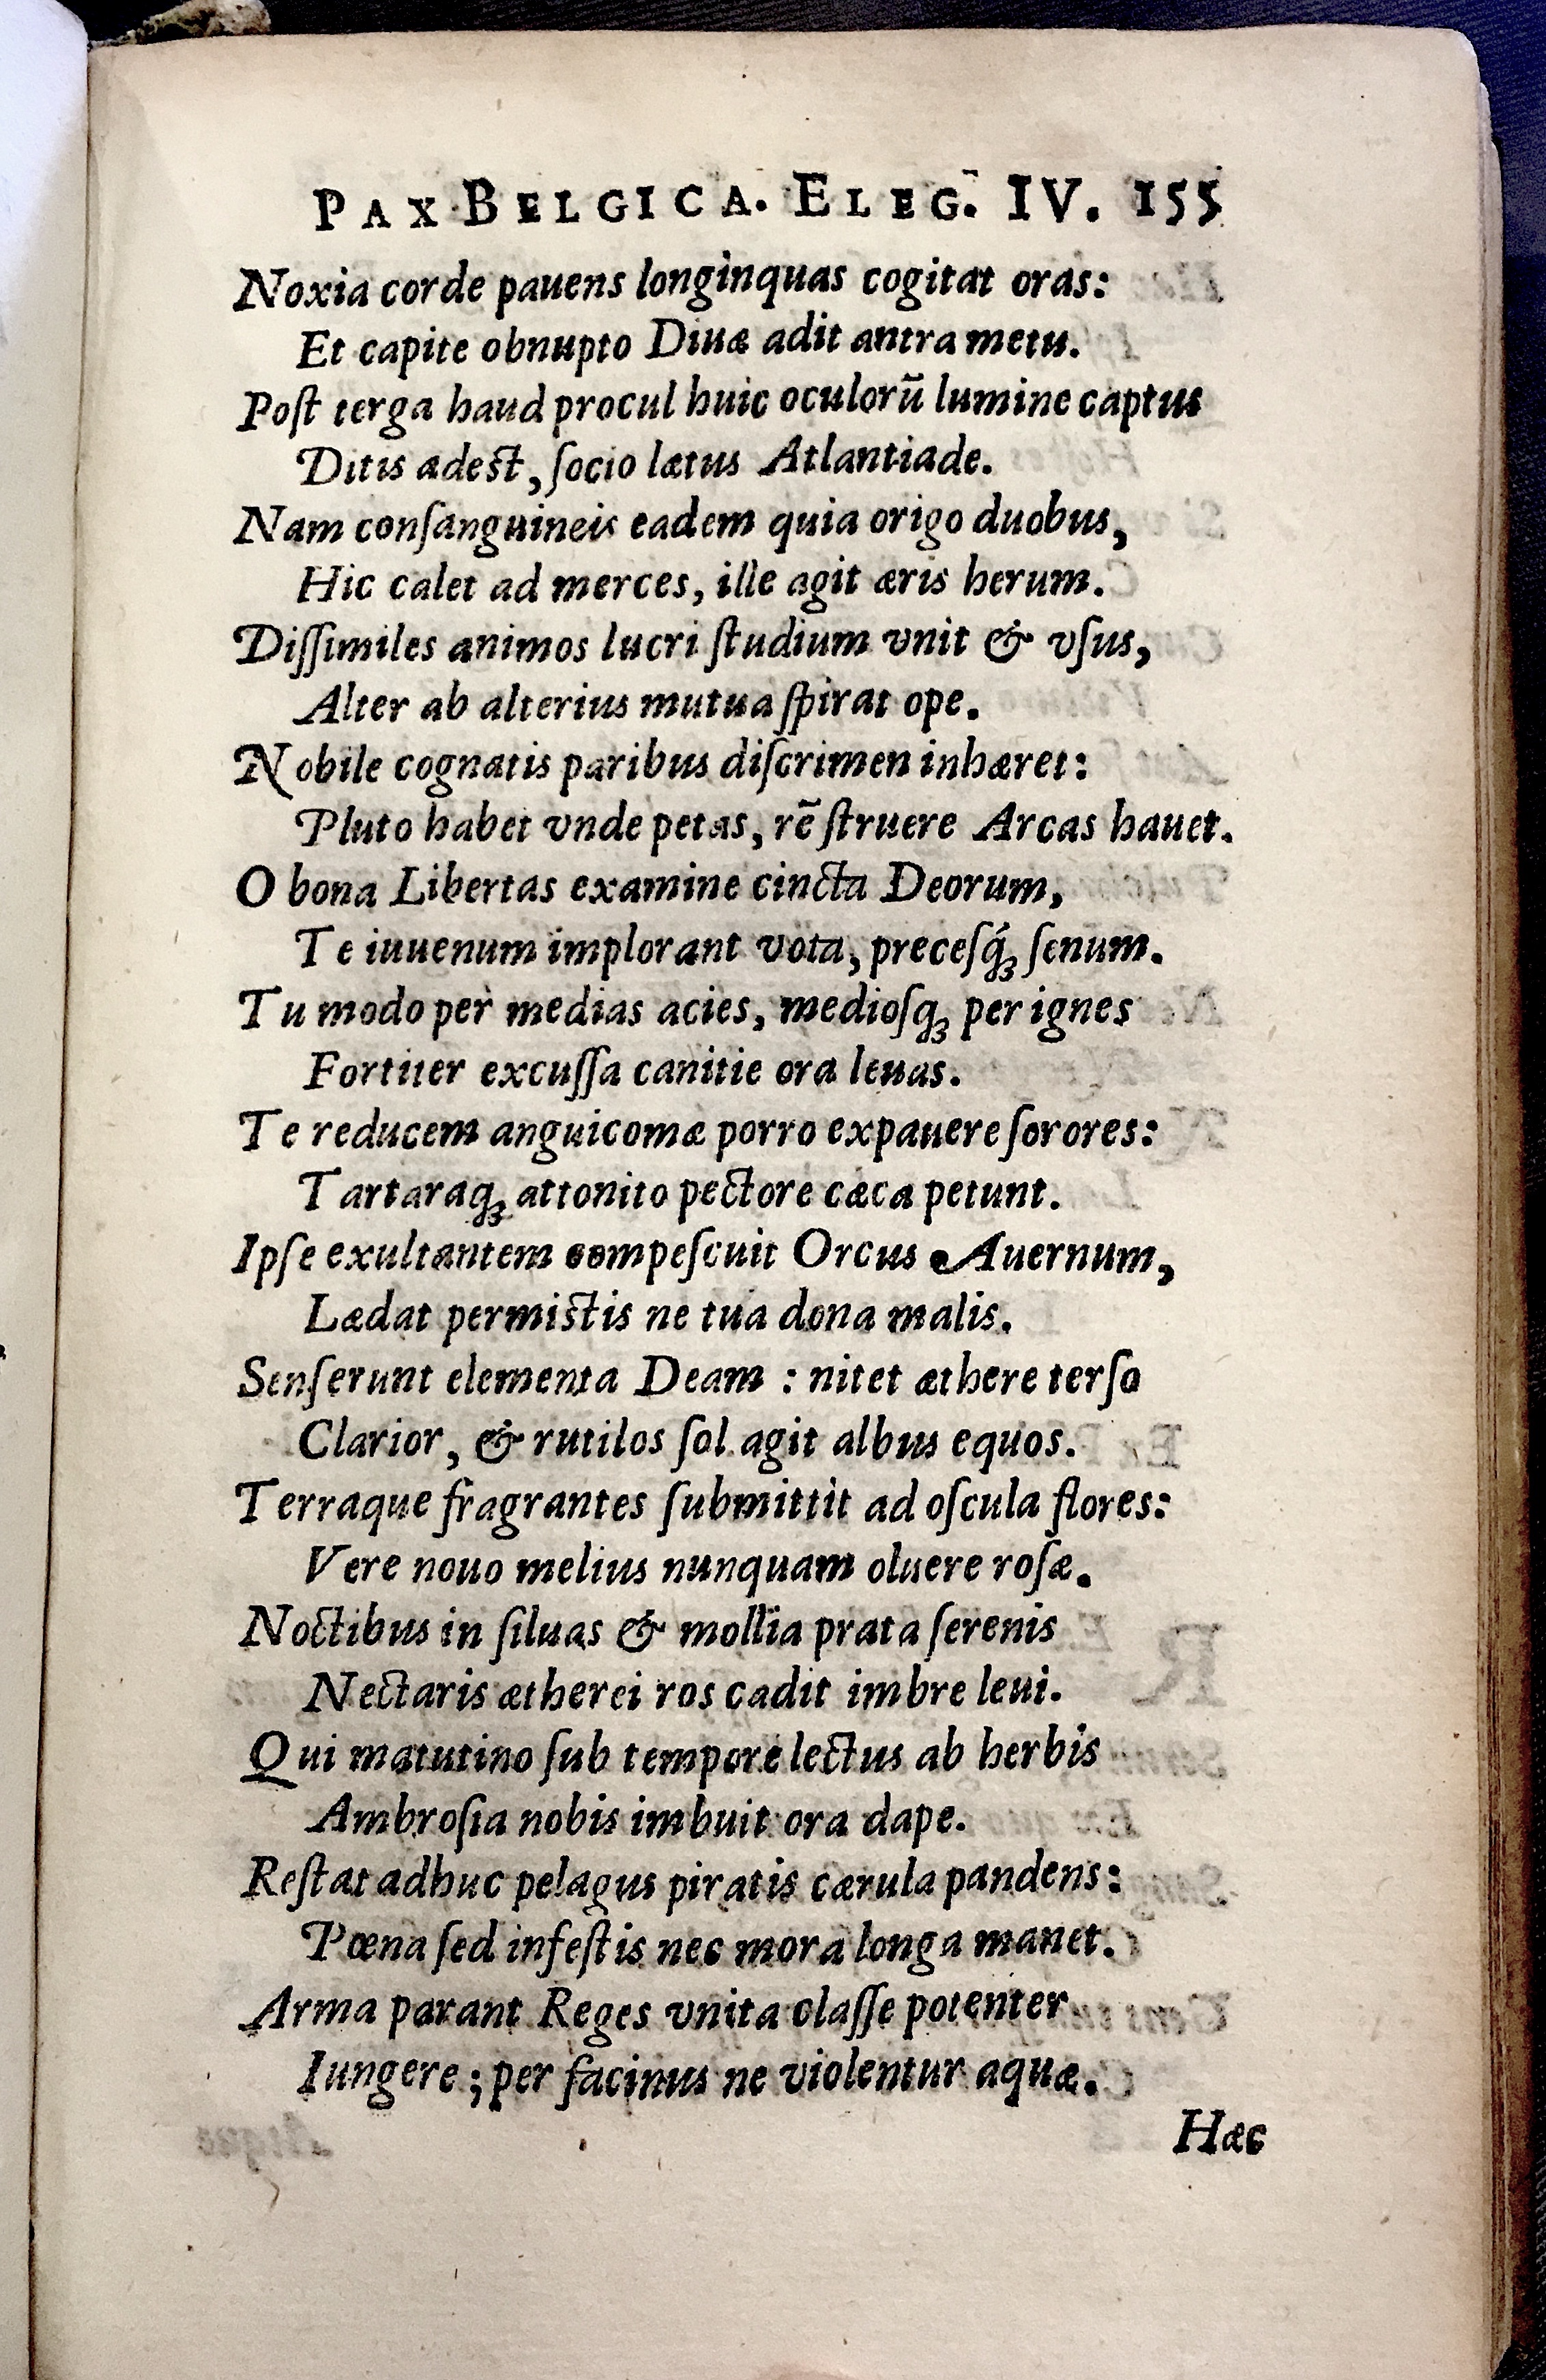 PAX BELGICA. ELEG. IV. 155
Noxia corde pauens longinquas cogitat oras:
Et capite obnupto Diuæ adit antra metu.
Poſt terga haud procul huic oculorū lumine captus
Ditis adeſt, ſocio lætus Atlantiade.
Nam conſanguineis eadem quia origo duobus,
Hic calet ad merces, ille agit æris herum.
Diſſimiles animos lucri ſtudium vnit & vſus,
Alter ab alterius mutua ſpirat ope.
Nobile cognatis paribus diſcrimen inhæret:
Pluto habet vnde petas, rē ſtruere Arcas hauet.
O bona Libertas examine cincta Deorum,
Te iuuenum implorant vota, preceſq́; ſenum.
Tu modo per medias acies, medioſq; per ignes
Fortiter excuſſa canitie ora leuas.
Te reducem anguicomæ porro expauere ſorores:
Tartaraq; attonito pectore cæca petunt.
Ipſe exultantem compeſcuit Orcus Auernum,
Lædat permiſtis ne tua dona malis.
Senſerunt elementa Deam : nitet æthere terſo
Clarior, & rutilos ſol agit albus equos.
Terraque fragrantes ſubmittit ad oſcula flores:
Vere nouo melius nunquam oluere roſæ.
Noctibus in ſiluas & mollia prata ſerenis
Nectaris ætherei ros cadit imbre leui.
Qui matutino ſub tempore lectus ab herbis
Ambroſia nobis imbuit ora dape.
Reſtat adhuc pelagus piratis cærula pandens:
Pœna ſed infeſtis nec mora longa manet.
Arma parant Reges vnita claſſe potenter
Iungere ; per facinus ne violentur aquæ.
Hæc